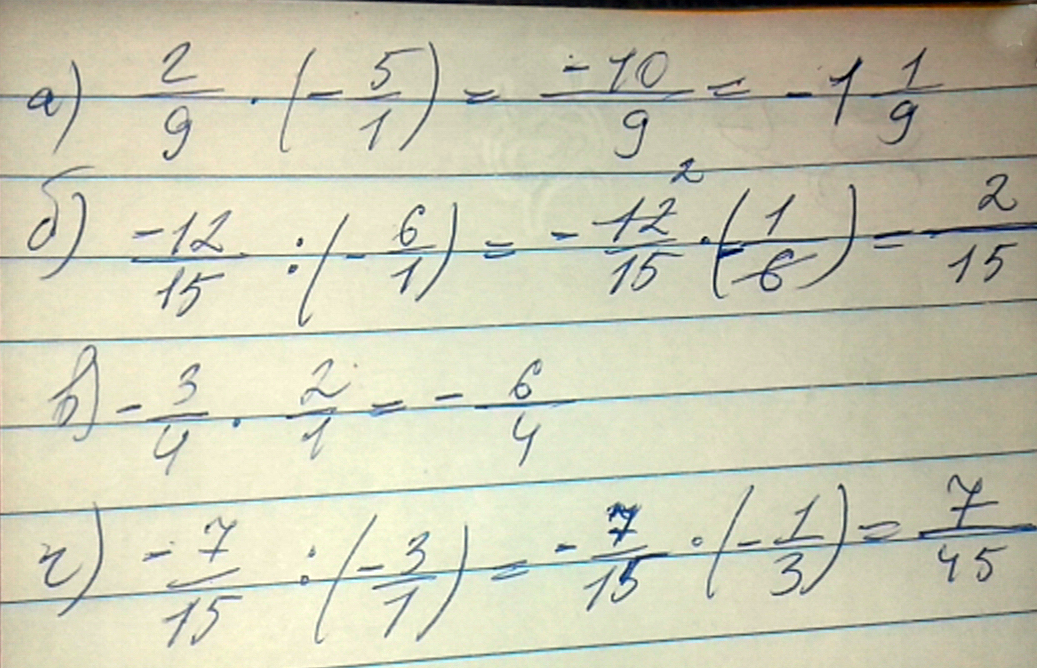 а) 2/9 · (- 5/1) = -10/9 = -1 1/9
б) -12/15 : (- 6/1) = - 12/15 2 · (- 1/6) = 2/15
в) - 3/4 · 2/1 = - 6/4
г) - 7/15 : (- 3/1) = - 7/15 · (- 1/3) = 7/45